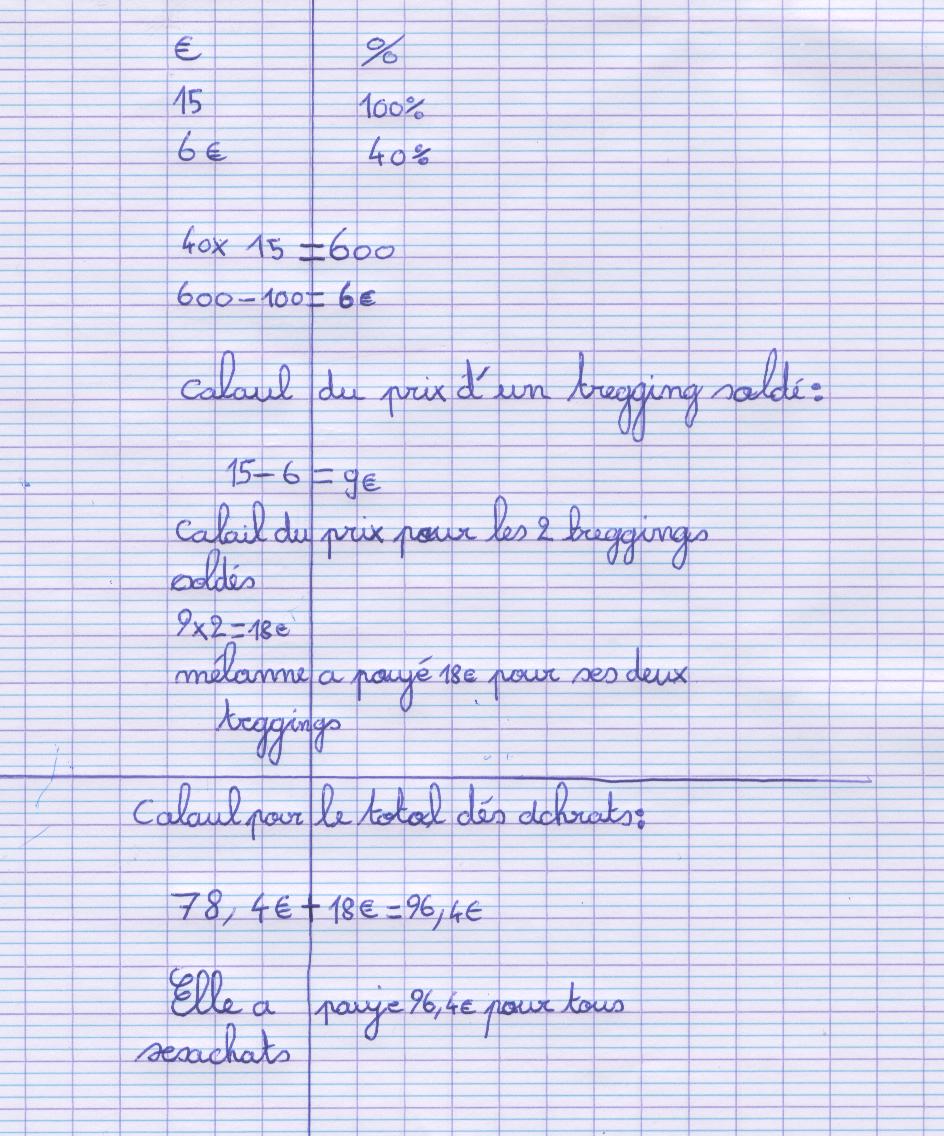 € %
15 100%
6€ 40%
40x 15 = 600
600-100= 6€
Calaul du prix d'un tregging soldé:
15-6 = 9€
Calail du prix pour les 2 treggings
soldés
9x2=18€
mélanne a payé 18€ pour ses deux
treggings
Calaul pour le total dés achrats:
78,4€ + 18€ = 96,4€
Elle a payé 96,4€ pour tous
ses achats